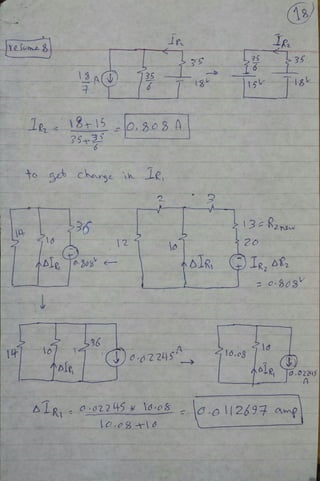 18
resume 8
I_R2
35
35/6
18/7 A
18v
→
I_R2
35/6
15v
35
18v
I_R2 = 18+15 / 35+35/6 = 0.808 A
to get change in I_R1
14
10
36
ΔI_R1
0.808v
←
2
3
12
10
ΔI_R1
13=R2new
20
I_R2 ΔR2
= 0.808v
↓
14
10
36
ΔI_R1
0.02245 A
→
10.08
10
ΔI_R1
0.02245 A
ΔI_R1 = 0.02245 * 10.08 / 10.08+10 = 0.0112697 amp